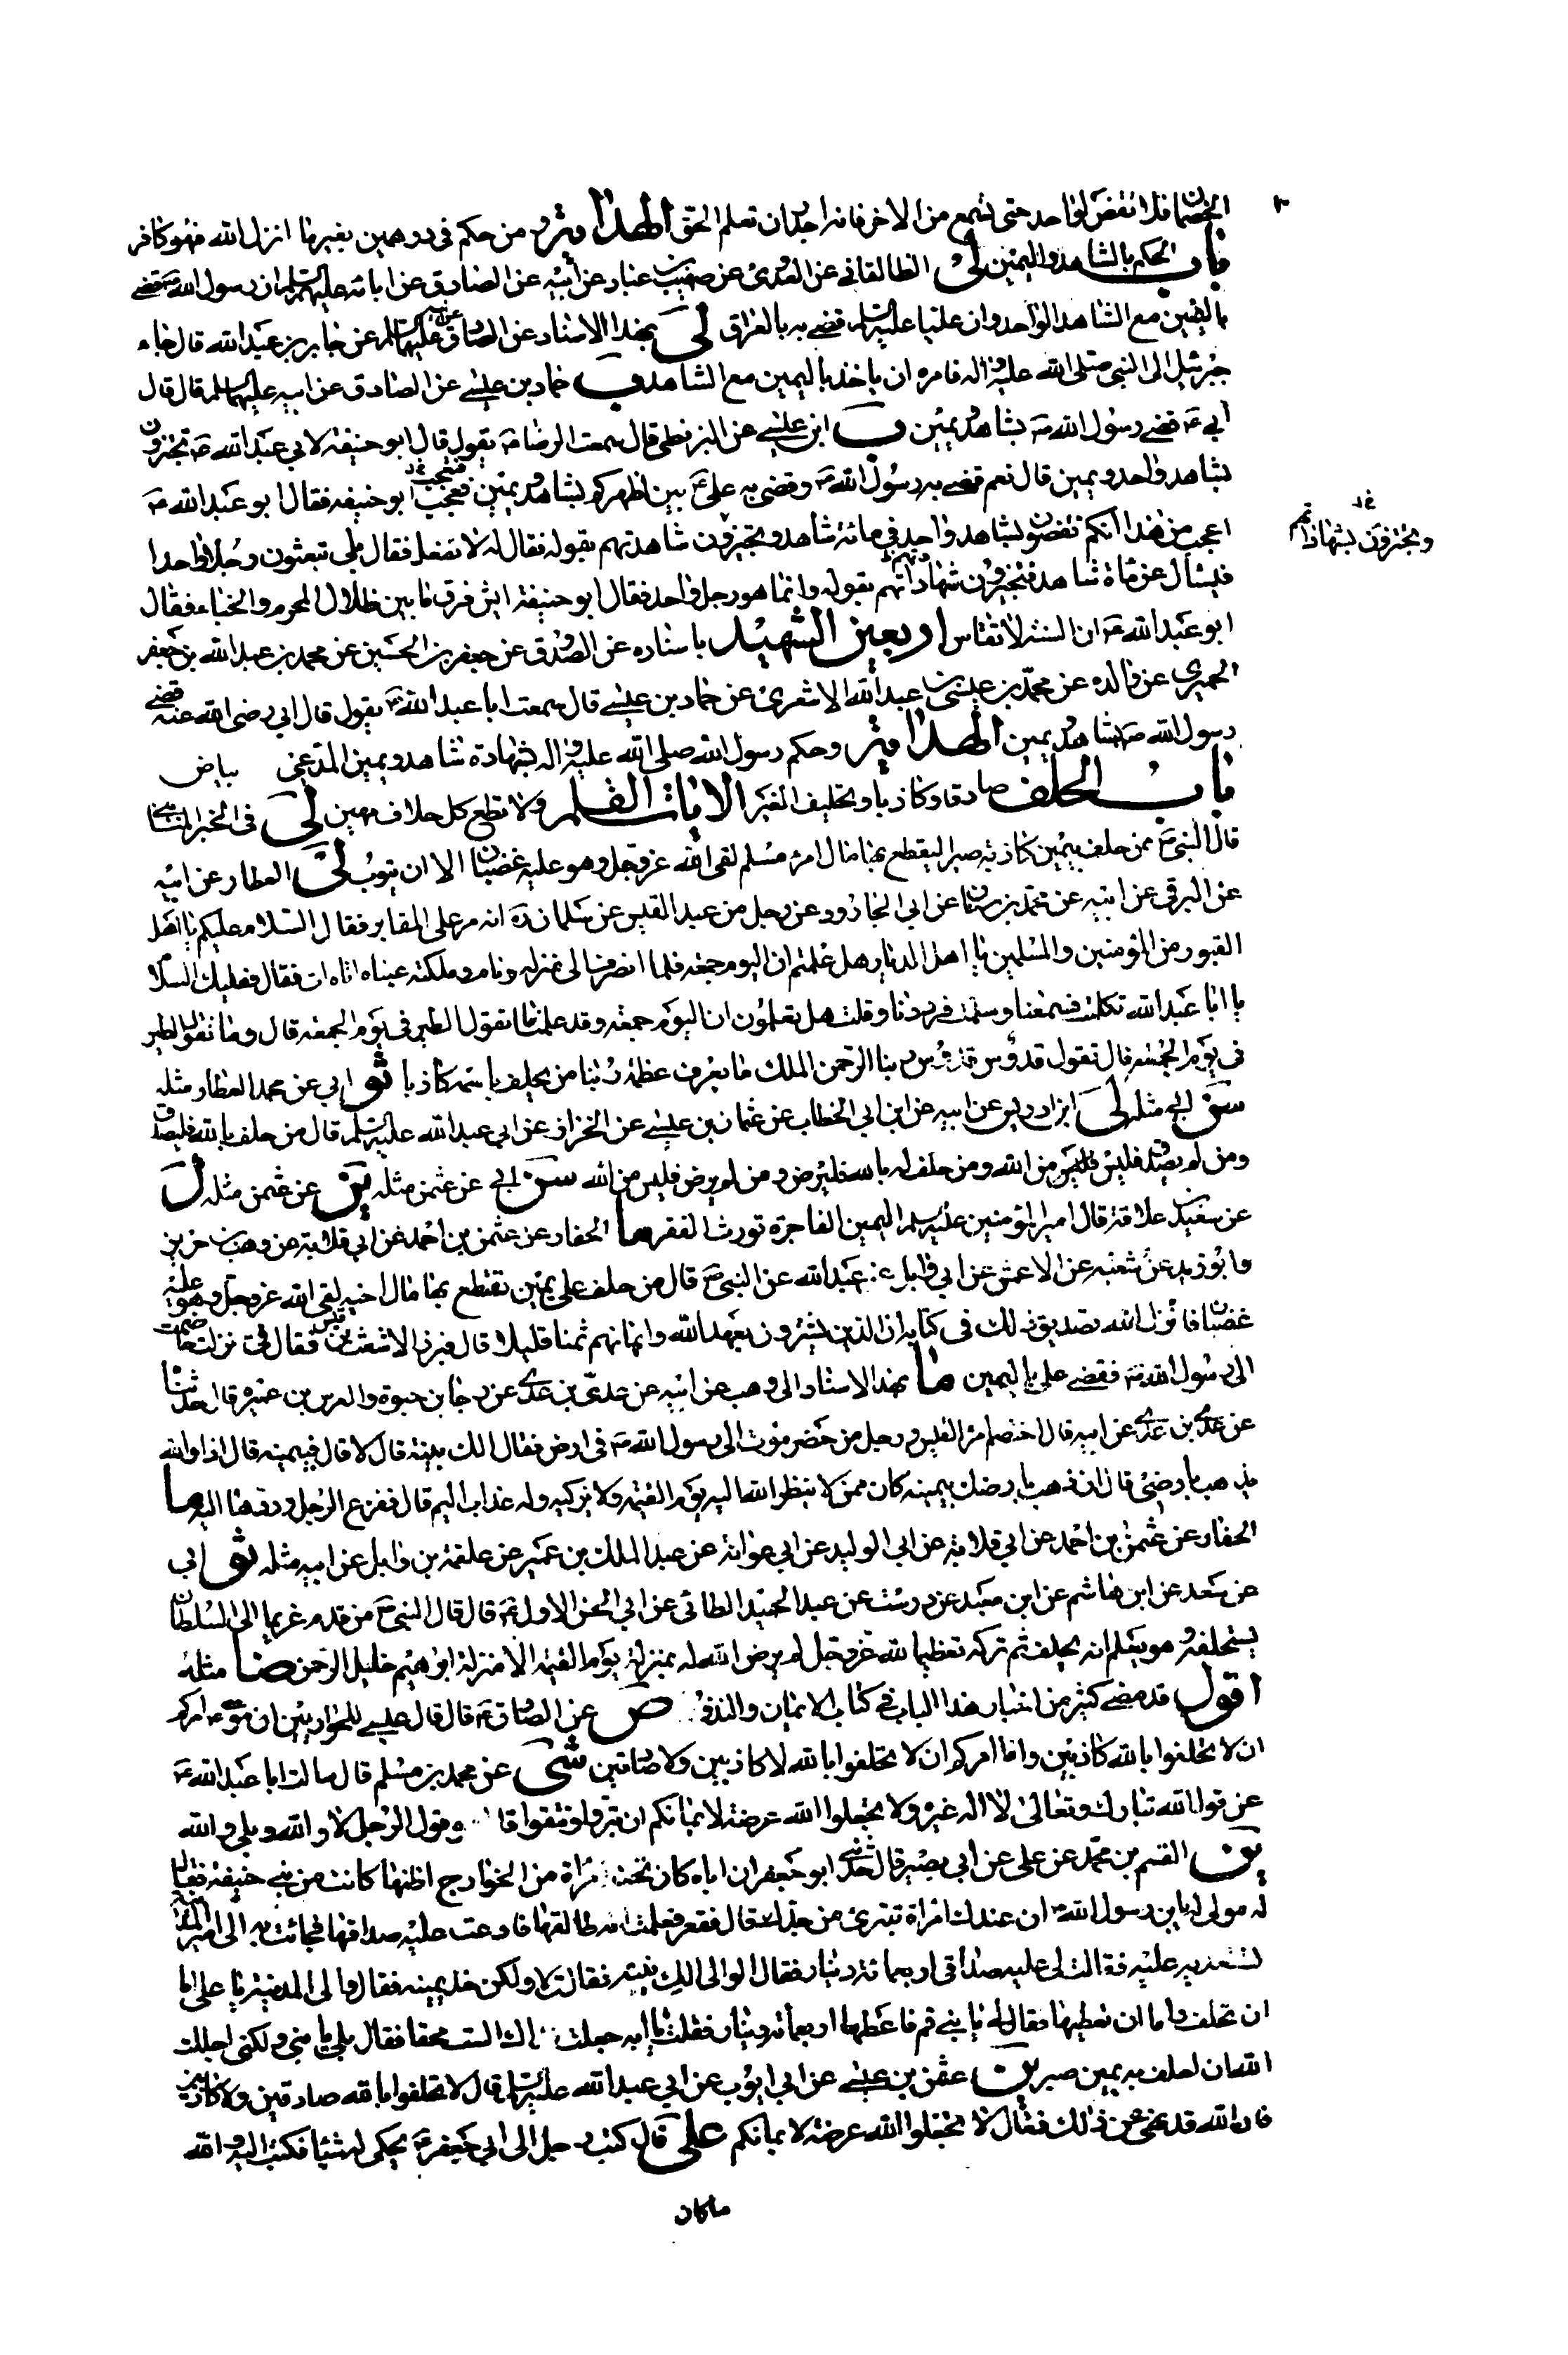 الخصمان فلا تقض لواحد حتى تسمع من الاخر فانه اجدر ان تعلم الحق الهداية من حكم في درهمين بغير ما انزل الله فهو كافر
باب الحكم بالشاهد واليمين لى الطالقاني عن العدوي عن صهيب بن عباد عن أبيه عن الصادق عن ابائه عليهم السلام ان رسول الله ص قضى
باليمين مع الشاهد الواحد وان عليا عليه السلم قضى به بالعراق لى بهذا الاسناد عن الصادق عن ابيه عليهما السلم عن جابر بن عبد الله قال جاء
جبرئيل الى النبي صلى الله عليه واله فامره ان ياخذ باليمين مع الشاهد ب حماد بن عيسى عن الصادق عن ابيه عليهما السلم قال قال
أبي ع قضى رسول الله ص بشاهد ويمين ب ابن عيسى عن البزنطي قال سمعت الرضا ع يقول قال ابو حنيفة لابي عبد الله ع تجيزون
بشاهد واحد ويمين قال نعم قضى به رسول الله ص وقضى به علي ع بين اظهركم بشاهد ويمين فعجب فتعجب خد ابو حنيفه فقال ابو عبد الله ع
اعجب من هذا انكم تقضون بشاهد واحد في مائة شاهد وتجيزون شاهدتهم بقوله فقال له لا نفعل فقال بلى تبعثون رجلا واحدا
خد
وتجتزؤن بشهاداتهم
فيسأل عن مأة شاهد فتجيزون شهاداتهم بقوله وانما هو رجل واحد فقال ابو حنيفة ايش فرق ما بين ظلال المحرم والخباء فقال
ابو عبد الله ع ان السنة لا تقاس اربعين الشهيد باسناده عن الصدوق عن جعفر بن الحسين عن محمد بن عبد الله بن جعفر
الحميري عن والده عن محمد بن عيسى بن عبد الله الاشعري عن حماد بن عيسى قال سمعت ابا عبد الله ع يقول قال ابي رضي الله عنه قضى
رسول الله ص بشاهد ويمين الهداية وحكم رسول الله صلى الله عليه واله بشهادة شاهد ويمين المدعي بياض
باب الحلف صادقا وكاذبا وتحليف الغير الايات القلم ولا تطع كل حلاف مهين لى في الخبر المناهي
قال النبي ص من حلف بيمين كاذبة صبرا ليقطع بها مال امرء مسلم لقي الله عز وجل وهو عليه غضبان الا ان يتوب لى العطار عن ابيه
عن البرقي عن ابيه عن محمد بن سنان عن ابي الجارود عن رجل من عبد القيس عن سلمان ره انه مر على المقابر فقال السلام عليكم يا اهل
القبور من المؤمنين والمسلمين يا اهل الديار هل علمتم ان اليوم جمعه فلما انصرف الى منزله ونام وملكته عيناه اتاه ات فقال وعليك السلام
يا ابا عبد الله تكلمت فسمعنا وسلمت فرددنا وقلت هل تعلمون ان اليوم جمعه وقد علمنا ما تقول الطير في يوم الجمعه قال وما تقول الطير
في يوم الجمعه قال تقول قدوس قدوس ربنا الرحمن الملك ما يعرف عظمة ربنا من يحلف باسمه كاذبا ثو ابي عن محمد العطار مثله
سن ابي مثله لى ابن ادريس عن ابيه عن ابن ابي الخطاب عن عثمان بن عيسى عن الخزاز عن ابي عبد الله عليه السلم قال من حلف بالله فليصدق
ومن لم يصدق فليس من الله ومن حلف له بالله فليرض ومن لم يرض فليس من الله سن ابي عن عثمن مثله ين عن عثمن مثله ل
عن سعيد بن علاقة قال امير المؤمنين عليه السلم اليمين الفاجرة تورث الفقر ما الحفار عن عثمن بن احمد عن ابي قلابة عن وهب بن جرير
وابو زيد عن شعبه عن الاعمش عن ابي وايل عن عبد الله عن النبي ص قال من حلف على يمين تقتطع بها مال اخيه لقي الله عز وجل وهو عليه
غضبان فانزل الله تصديق ذلك في كتابه ان الذين يشترون بعهد الله وايمانهم ثمنا قليلا قال فبرز الاشعث بن قيس فقال في نزلت خاصمت
الى رسول الله ص فقضى علي باليمين ما بهذا الاسناد الى وهب عن ابيه عن عدي بن عدي عن رجا بن حيوة والعرس بن عميره قال حدثنا
عن عدي بن عدي عن ابيه قال اختصم امرؤ القيس ورجل من حضرموت الى رسول الله ص في ارض فقال الك بينة قال لا قال فيمينه قال اذا والله
يذهب بارضي قال ان ذهب بارضك بيمينه كان ممن لا ينظر الله اليه يوم القيمة ولا يزكيه وله عذاب اليم قال ففزع الرجل وردها اليه ما
الحفار عن عثمن بن احمد عن ابي قلابة عن ابي الوليد عن ابي عوانة عن عبد الملك بن عمير عن علقمة بن وايل عن ابيه مثله ثو ابي
عن سعد عن ابن هاشم عن ابن معبد عن درست عن عبد الحميد الطائي عن ابي الحسن الاول ع قال قال النبي ص من قدم غريما الى السلطان
يستحلفه وهو يعلم انه يحلف ثم تركه تعظيما لله عز وجل لم يرض الله له بمنزلة يوم القيمة الا منزلة ابرهيم خليل الرحمن ضا مثله
اقول قد مضى كثير من اخبار هذا الباب في كتاب الايمان والنذور ص عن الصادق ع قال قال عيسى للحواريين ان موسى ع امركم
ان لا تحلفوا بالله كاذبين وانا امركم ان لا تحلفوا بالله لا كاذبين ولا صادقين شى عن محمد بن مسلم قال سالت ابا عبد الله ع
عن قول الله تبارك وتعالى لا اله غيره ولا تجعلوا الله عرضة لايمانكم ان تبروا وتتقوا قا هو قول الرجل لا والله وبلى والله
ين القسم بن محمد عن علي عن ابي بصير قال حدثني ابو جعفر ان اباه كان تحته امرأة من الخوارج اظنها كانت من بني حنيفة فقال
له مولى له يابن رسول الله ان عندك امرأة تتبرئ من جدك قال فقعر فعلمت انه طالقها فادعت عليه صداقها فجائت به الى امير المدينة
تستعديه عليه فقالت لي عليه صداقي اربعمائة دينار فقال الوالي الك بينة فقالت لا ولكن خذ يمينه فقال والي المدينة يا علي اما
ان تحلف واما ان تعطيها فقال له يا بني قم فاعطها اربعمائة دينار فقلت يا ابه جعلت فداك الست محقا فقال بلى يا بني ولكني اجللت
الله ان احلف به يمين صبر ين عثمن بن عيسى عن ابي ايوب عن ابي عبد الله عليه السلم قال لا تحلفوا بالله صادقين ولا كاذبين
فان الله قد نهى عن ذلك فقال لا تجعلوا الله عرضة لايمانكم على قال كتب رجل الى ابي جعفر ع يحكي له شيئا فكتب اليه والله
ماكان